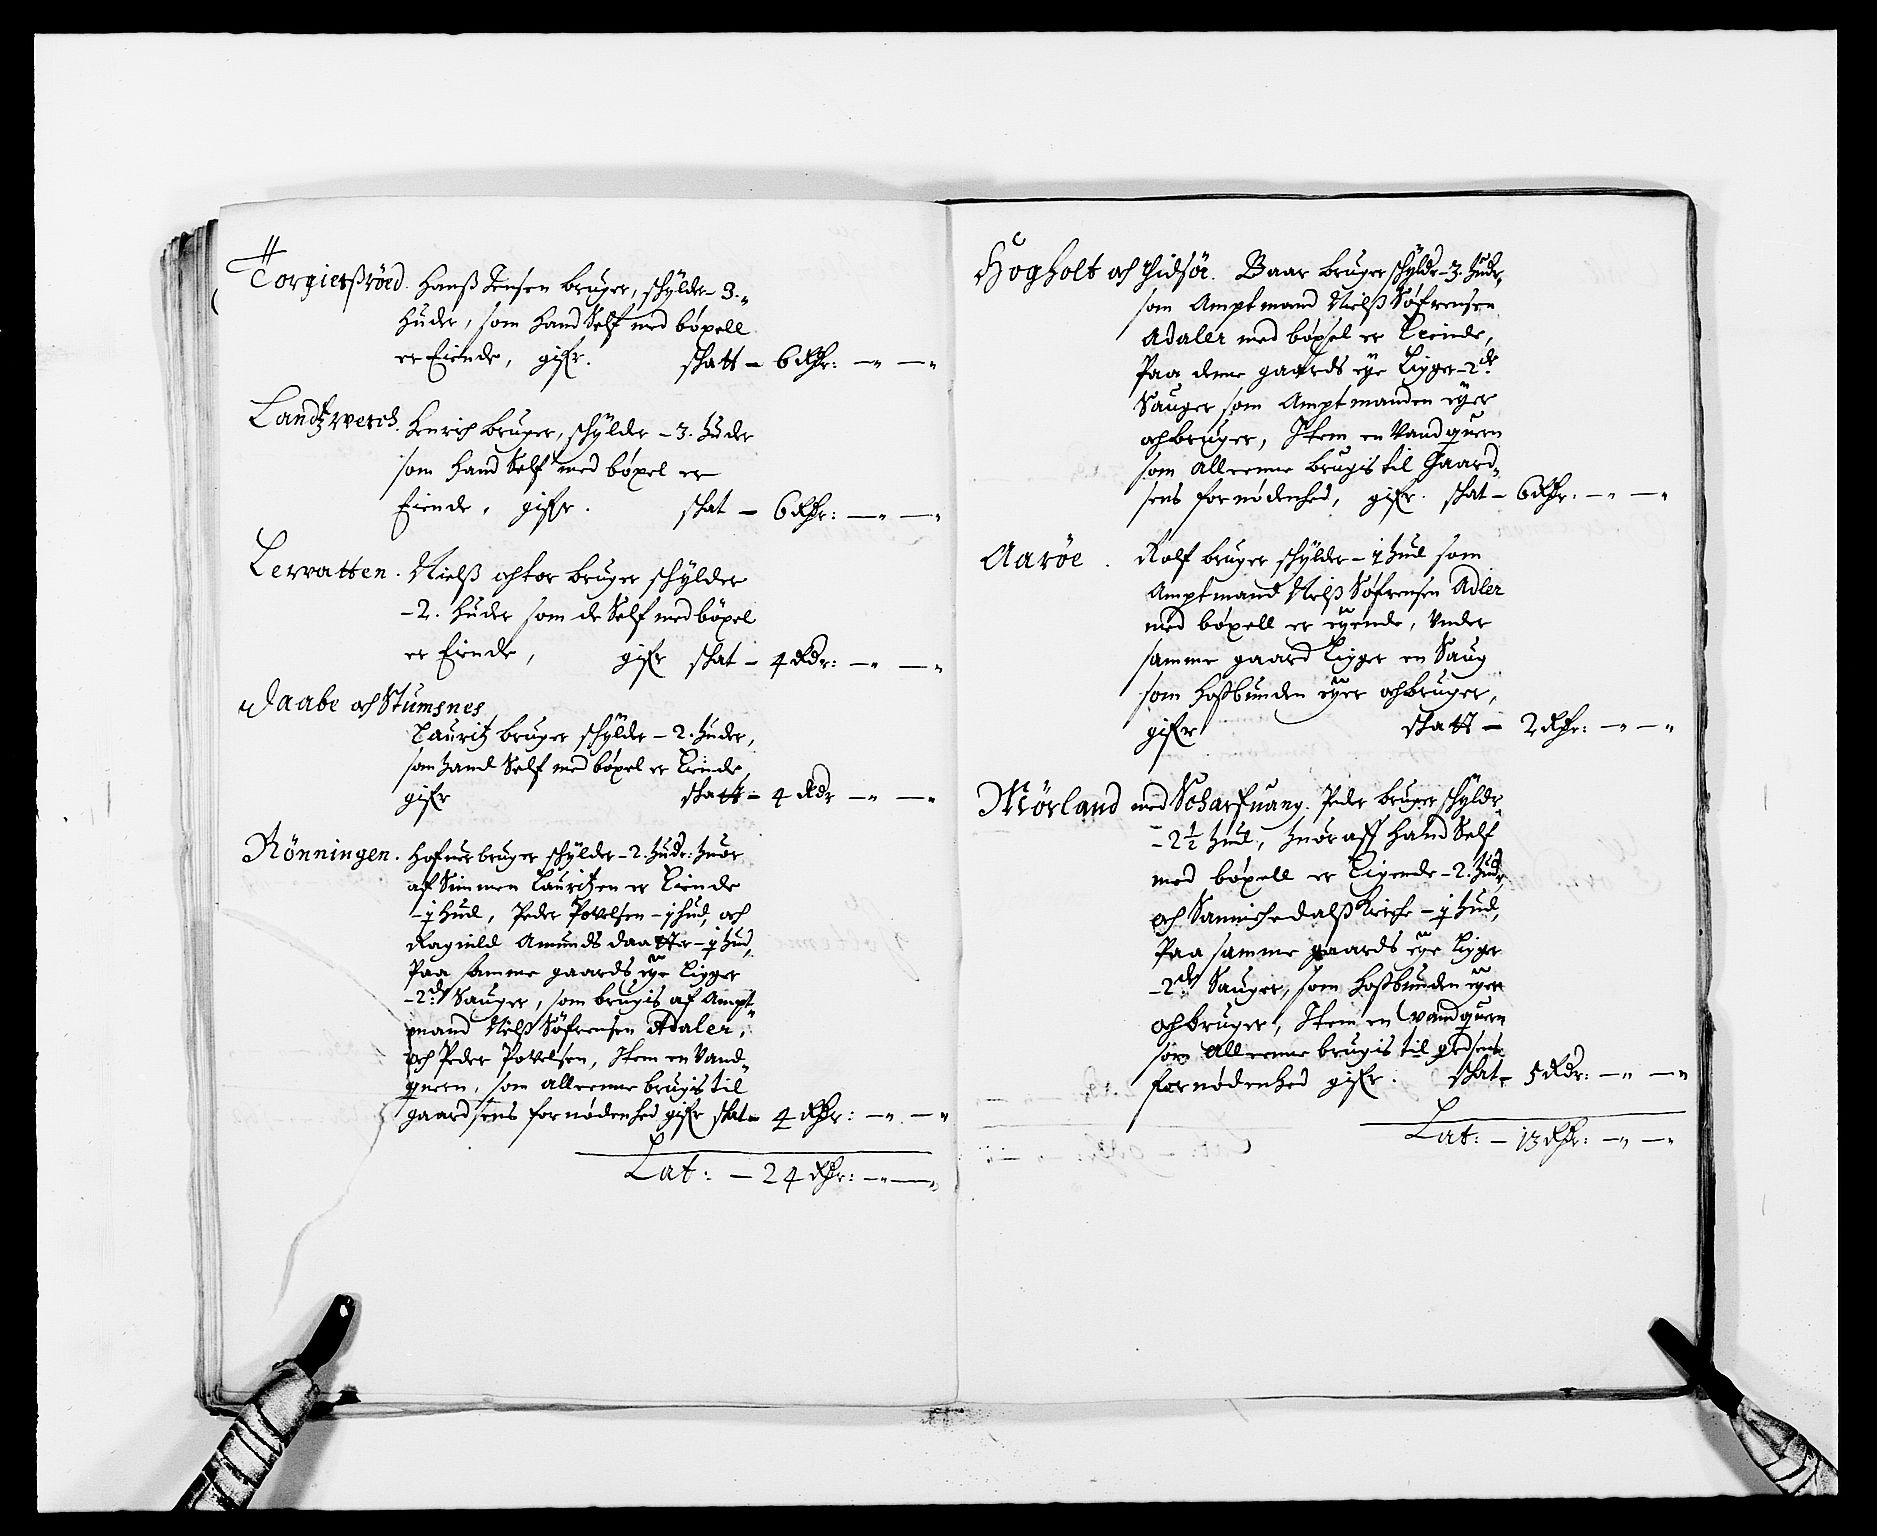 Torgierßröed. Hanß Jensen bruger, schÿlder – 3 „
Huder, som hand Self med böxell
er Eiende, gifr. skatt – 6 Rdr: – „ – „
Landtzwerch. Henrich bruger, schÿlder – 3. Huder
som hand Self med böxel er
Eiende, gifr. skat – 6 Rdr: – „ – „
Lervatten. Nielß och Tor bruger schÿlder
– 2. Huder som de Self med böxel
er Eiende, gifr skat – 4 Rdr: – „ – „
Daabe och Stumsnes
Lauritz bruger schÿlder – 2. Huder,
som hand Self med böxel er Eiende
gifr skatt – 4 Rdr – „ – „
Rönningen. bruger schÿlder – 2. Hudr: huor
af Simmen Lauritzen er Eiende
– j hud, Peder Povelsen – j hud, och
Ragnild Amunds daatter – j hud,
Paa samme gaards eÿe Ligger
– 2de Sauger, som brugis af Ampt
mand Nielß Söfrensen Adaler,
och Peder Povelsen, Item en Vand„
quern, som alleenne brugis til
gaardsens fornödenhed gifr skat – 4 Rdr: – „ – „
Lat: – 24 Rdr: – „ – „
Högholt och Tidsör. Baar bruger schÿldr – 3. Hudr,
som Amptmand Nielß Söfrensen
Adaler med böxsel er Eeiende,
Paa denne gaards eÿe Ligger – 2de
Sauger som Amptmanden eÿer
och bruger, Item en Vandquern
som alleenne brugis til Gaard„
sens fornödenhed, gifr. skat – 6 Rdr: – „ – „
Aaröe. Rolf bruger schÿlder – j hud som
Amptmand Nielß Söfrensen Adler
med böxell er eÿende, Vnder
samme gaard Ligger en Saug
som Hoßbunden eÿer och bruger,
gifr skatt – 2 Rdr: – „ – „
Mörland med Scharfuang. Peder bruger schÿldr
– 2 ½ hud, huor aff hand Self
med böxell er Eigende – 2. hudr,
och Sannichedalß Kirche – ½ hud,
Paa samme gaards eÿe Ligger
– 2de Sauger, som Hoßbunden eÿer
och bruger, Item en vandquern
som alleenne brugis til grdsens
fornödenhed gifr. skat – 5 Rdr: – „ – „
Lat: – 13 Rdr: – „ – „